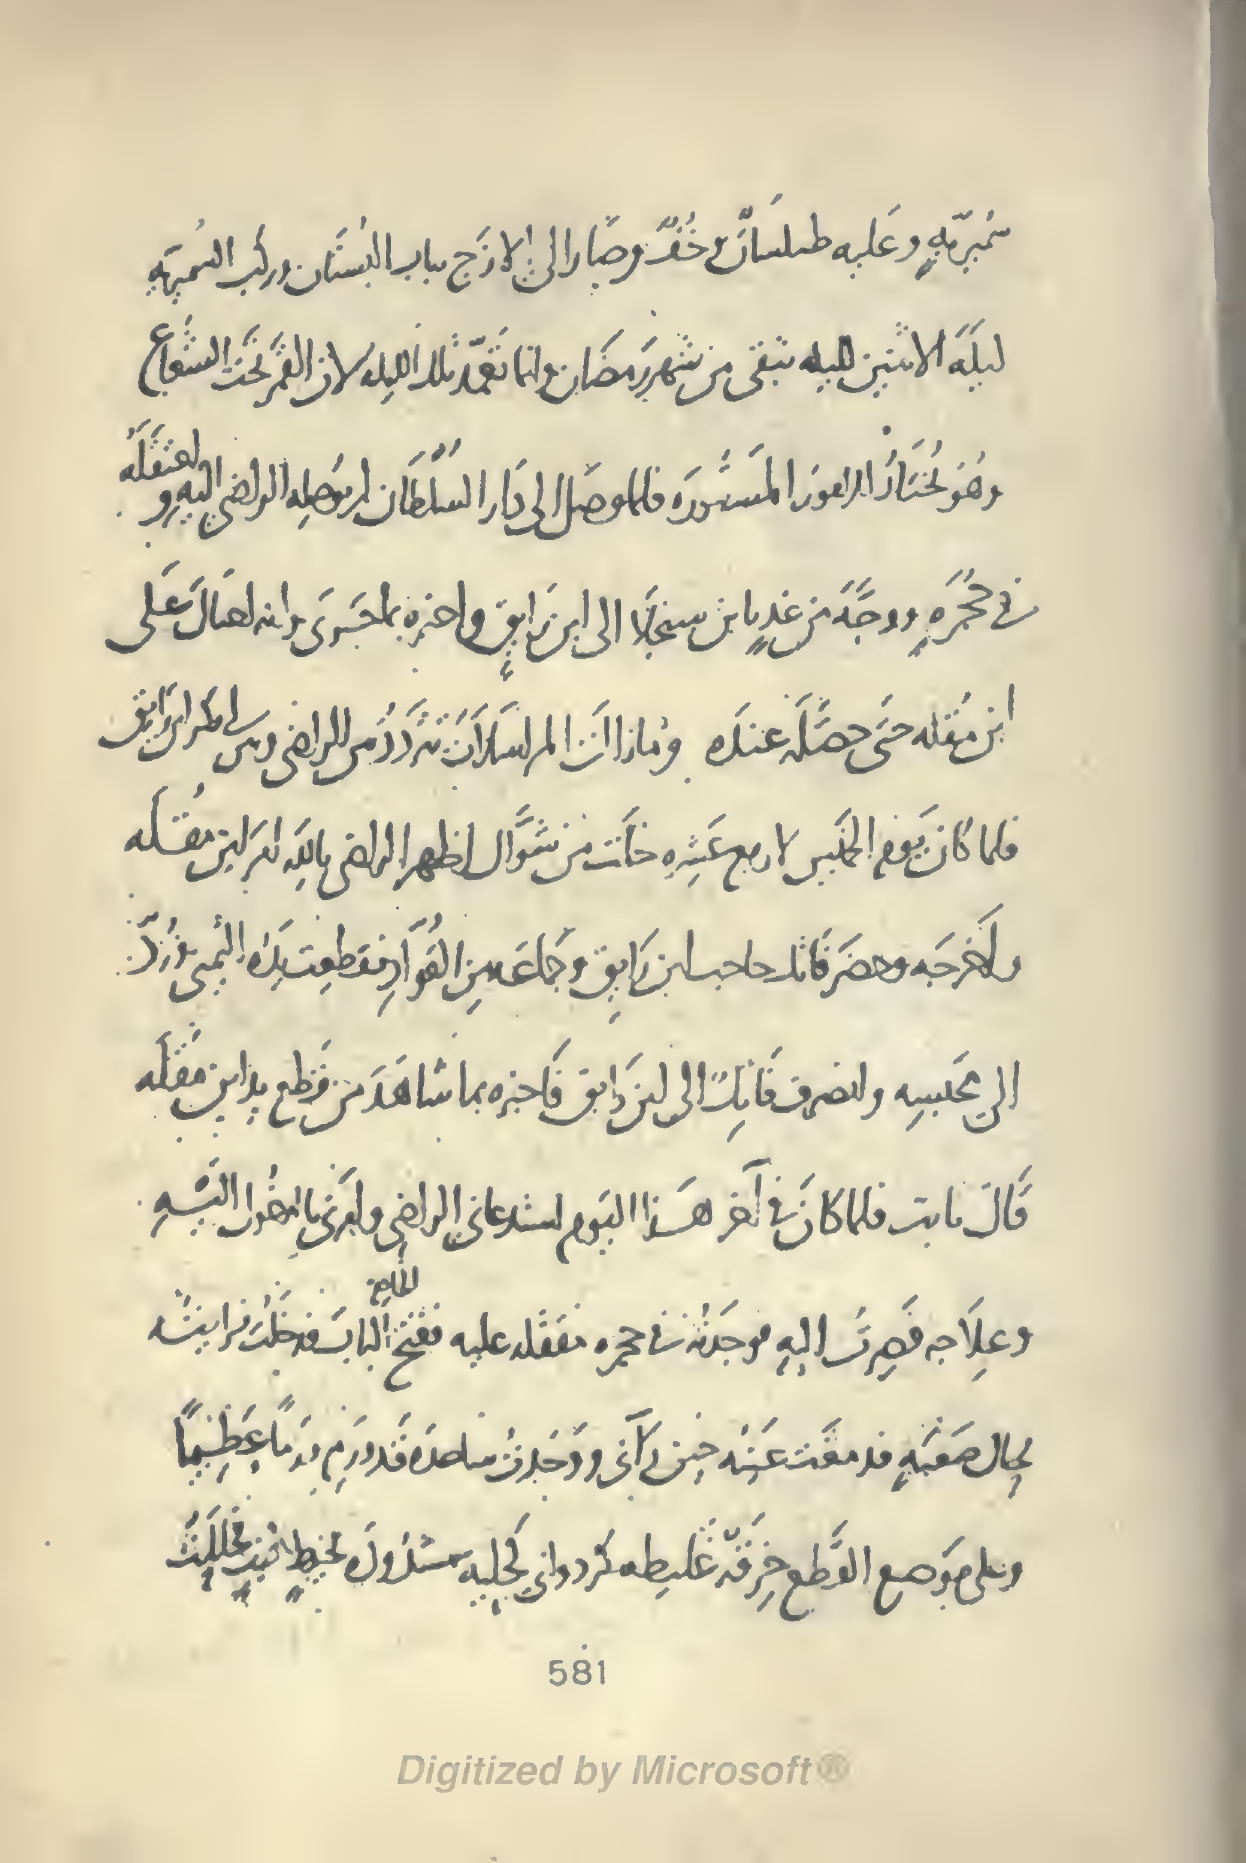 سُميريّةٍ وعَليه طيلسَانٌ وخُفٌّ وصَار الى الازَج بباب البُستَان وركب السُميريّة
ليلَة الاثنين لليله تبقى من شهر رَمضَان وانما تعمّد تلك الليله لان القمَر تحَت الشُعاع
وهُوَ يُختَارُ للامور المَستُورَه فلما وصَل الى دَار السُلطان لم يُوصِله الراضى اليه واعتقَلَهُ
في حُجرَهٍ ووجَّهَ من غدٍ بابن سنجلَا الى ابن رَايقٍ واخبره بما جَرَى وانه احتَالَ عَلى
ابن مُقله حتَى حصَّلَه عندَه وما زالَت المراسَلَاتَ تتَردَدُ بين الراضى وبين ابن رَايق
فلما كان يَوم الخَميس لاربع عَشِره خلَت من شَوَّال اظهر الراضى بالله امر ابن مُقله
واخرَجَه وحضرَ فَاتك حاجب ابن رَايق وجَماعَه مِن القُوَّاد فقطعت يَدُه اليُمنى ورُدَّ
الى مَحبسِه وانصرف فَاتِكٌ الى ابن رَايق فَاخبره بما شاهَدَ من قَطع يد ابن مُقلَه
قَالَ ثابت فلما كانَ في آخر هَذا اليَوم استدعاني الراضي وامَرنى بالدخُول اليَهِ
وعِلَاجه فَصِرتُ اليهِ فوجَدتُه في حجره مقفَله عليه ففتح الخادم البابَ فدخَلتُ فرايتُه
بحالٍ صَعبَهٍ فدمعَت عَينُه حينَ رَآنى ووَجَدتُ ساعدَه قَد ورَمِ ورَمًا عَظِيمًا
وعلى مَوضِع القَطع خِرقَهٌ غَليظه كردوانى كُحليه مشدُودَه بخيط قنب فحلَلَتُ
581
Digitized by Microsoft®